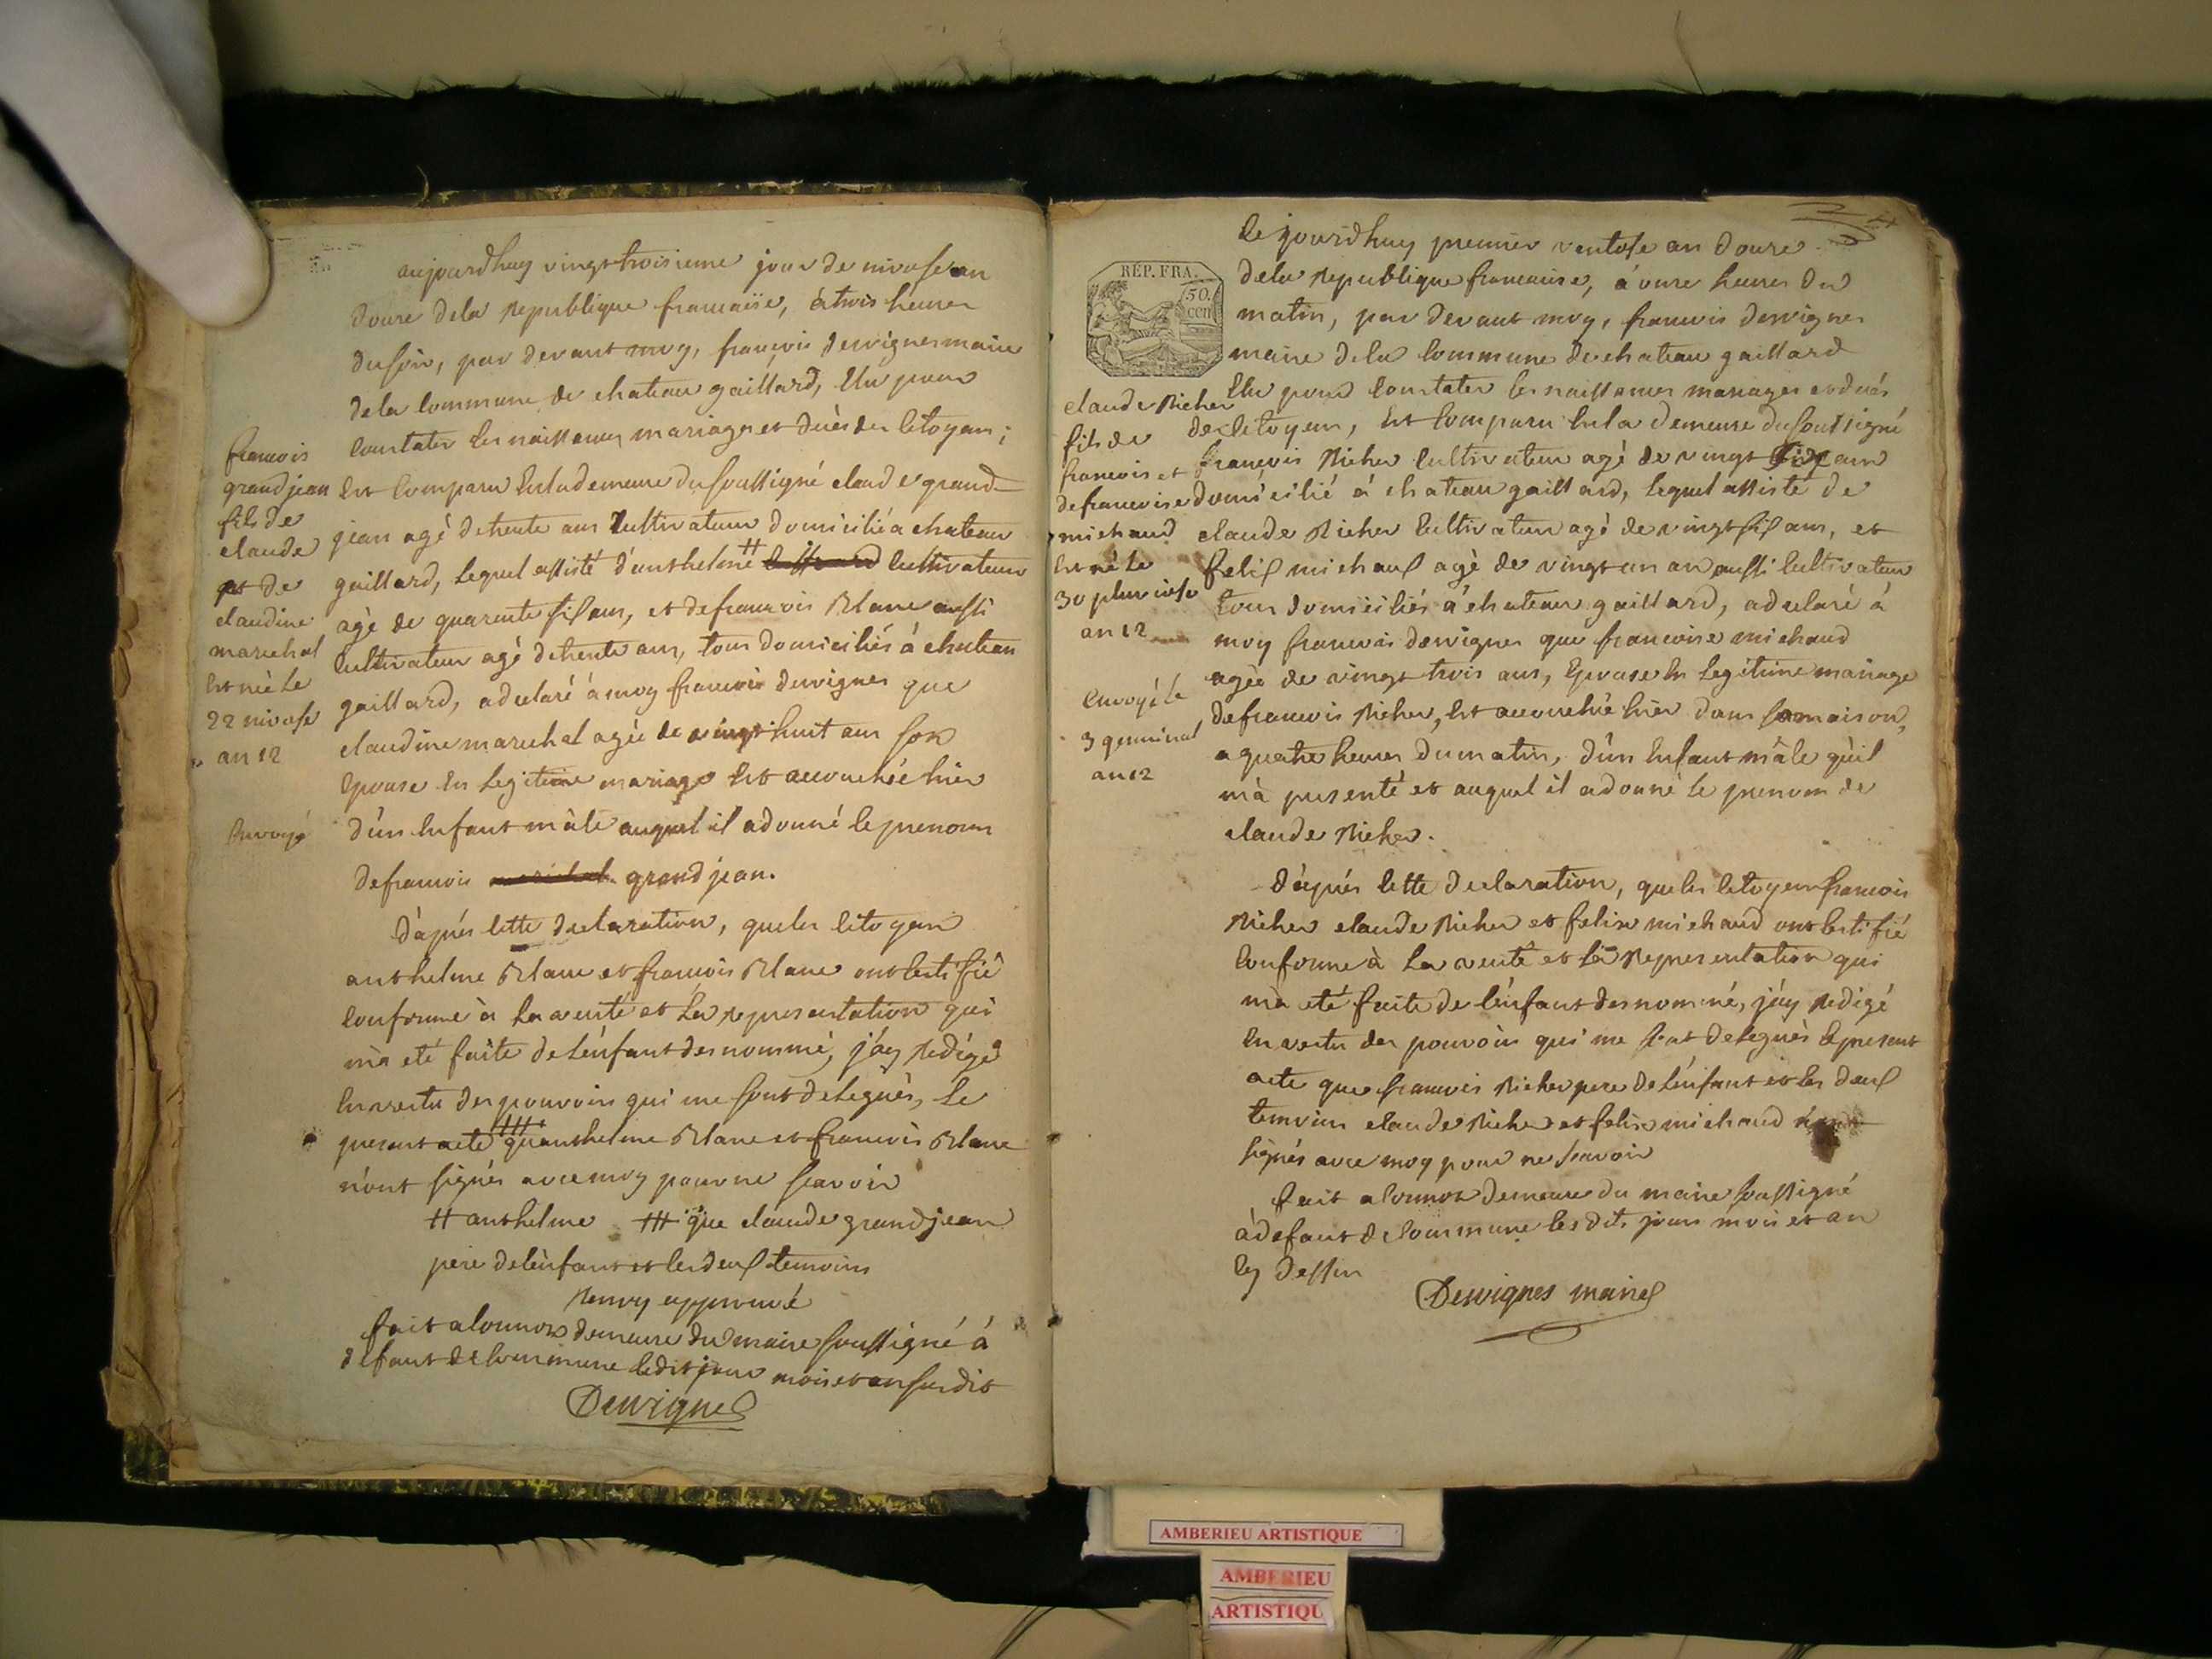 aujourdhuy vingt troisieme jour de nivose an
douze dela Republique francaise, à trois heures
du soir, par devant moy, françois dervignes maire
dela commune de chateau gaillard, Elu pour
constater les naissances mariages et décès des citoyens;
francois
grandjean
fils de
claude
et de
claudine
marechal
est né le
22 nivose
an 12
Envoyé
Est comparu En la demeure du soussigné claude grand
jean agé de trente ans cultivateur domicilié a chateau
gaillard, lequel assisté d'anthelme # cultivateur
agé de quarente six ans, et de francois Blanc aussi
cultivateur agé de trente ans, tous domiciliés à chateau
gaillard, a declaré à moy francois dervignes que
claudine marechal agée de vingt huit ans son
Epouse En legitime mariage Est accouchée hier
d'un Enfant mâle auquel il a donné le prenom
de francois grand jean.
d'après cette declaration, que les citoyens
anthelme Blanc et francois Blanc ont certifié
conforme à la verité et la representation qui
m'a eté faite de l'enfant desnommé, j'ay Redigé
En vertu des pouvoirs qui me sont delegués, le
present acte ## qu'anthelme Blanc et francois Blanc
n'ont signés avec moy pour ne scavoir
# anthelme ## que claude grandjean
pere de l'enfant et les deux temoins
Renvoy approuvé
fait a Cormoz demeure du maire soussigné à
defaut de commune ledit jour mois et an susdit
Dervignes
Ce jourdhuy premier ventose an douze
RÉP. FRA.
50.
cen
dela Republique francaise, à onze heures du
matin, par devant moy, francois dervignes
maire dela commune de chateau gaillard
Elu pour constater les naissances mariages et décés
des citoyens, Est comparu En la demeure du soussigné
claude Richer
fils de
francois et
de francoise
michaud
Est né le
30 pluviose
an 12
Envoyé le
3 germinal
an 12
françois Richer cultivateur agé de vingt six ans
domicilié à chateau gaillard, lequel assisté de
claude Richer cultivateur agé de vingt six ans, et
felix michaux agé de vingt un an aussi cultivateur
tous domiciliés à chateau gaillard, a declaré à
moy francois dervignes que francoise michaud
agée de vingt trois ans, Epouse En legitime mariage
de francois Richer, Est accouchée hier dans sa maison,
a quatre heures du matin, d'un Enfant mâle qu'il
m'à presenté et auquel il a donné le prenom de
claude Richer.
d'aprés cette declaration, que les citoyens francois
Richer claude Richer et felix michaud ont certifié
conforme à la verité et la Representation qui
m'a eté faite de l'enfant desnommé, j'ay Redigé
En vertu des pouvoirs qui me sont delegués le present
acte que francois Richer pere de l'enfant et les deux
temoins claude Richer et felix michaud n'ont
signés avec moy pour ne scavoir
fait a Cormoz demeure du maire soussigné
à defaut de commune les dits jours mois et an
Cy dessus
Dervignes maire
AMBERIEU ARTISTIQUE
AMBERIEU
ARTISTIQU